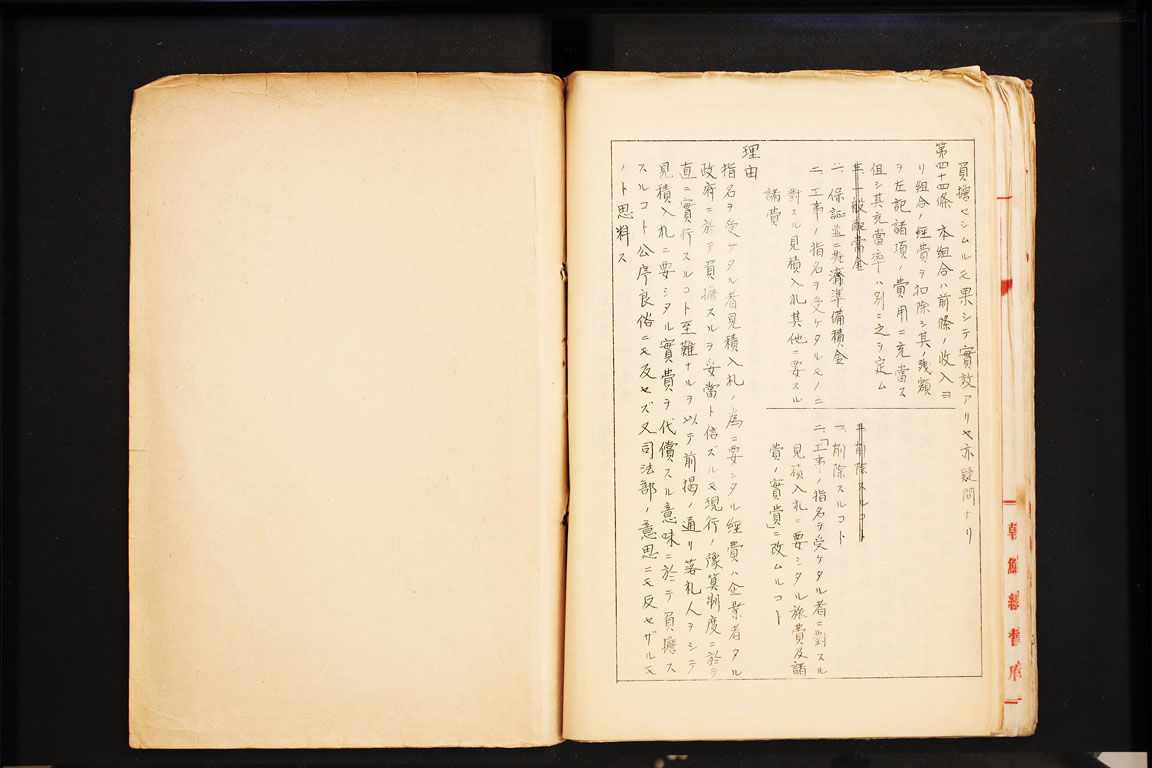 負擔セシムルモ果シテ實效アリヤ亦疑問ナリ
第四十四條 本組合ハ前條ノ收入ヨ
リ組合ノ經費ヲ扣除シ其ノ殘額
ヲ左記諸項ノ費用ニ充當ス
但シ其充當率ハ別ニ之ヲ定ム
一般配當金
一、保証並ニ共濟準備積金
二、工事ノ指名ヲ受ケタルモノニ
對スル見積入札其他ニ要スル
諸費
削除スルコト
一、削除スルコト
二、「工事ノ指名ヲ受ケタル者ニ對スル
見積入札ニ要シタル旅費及諸
費ノ實費」ニ改ムルコト
理由
指名ヲ受ケタル者見積入札ノ為ニ要シタル經費ハ企業者タル
政府ニ於テ負擔スルヲ妥當ト信ズルモ現行ノ豫算制度ニ於テ
直ニ實行スルコト至難ナルヲ以テ前揭ノ通リ落札人ヲシテ
見積入札ニ要シタル實費ヲ代償スル意味ニ於テ負擔ス
スルコト公序良俗ニモ反セズ又司法部ノ意思ニモ反セザルモ
ノト思料ス
朝鮮總督府